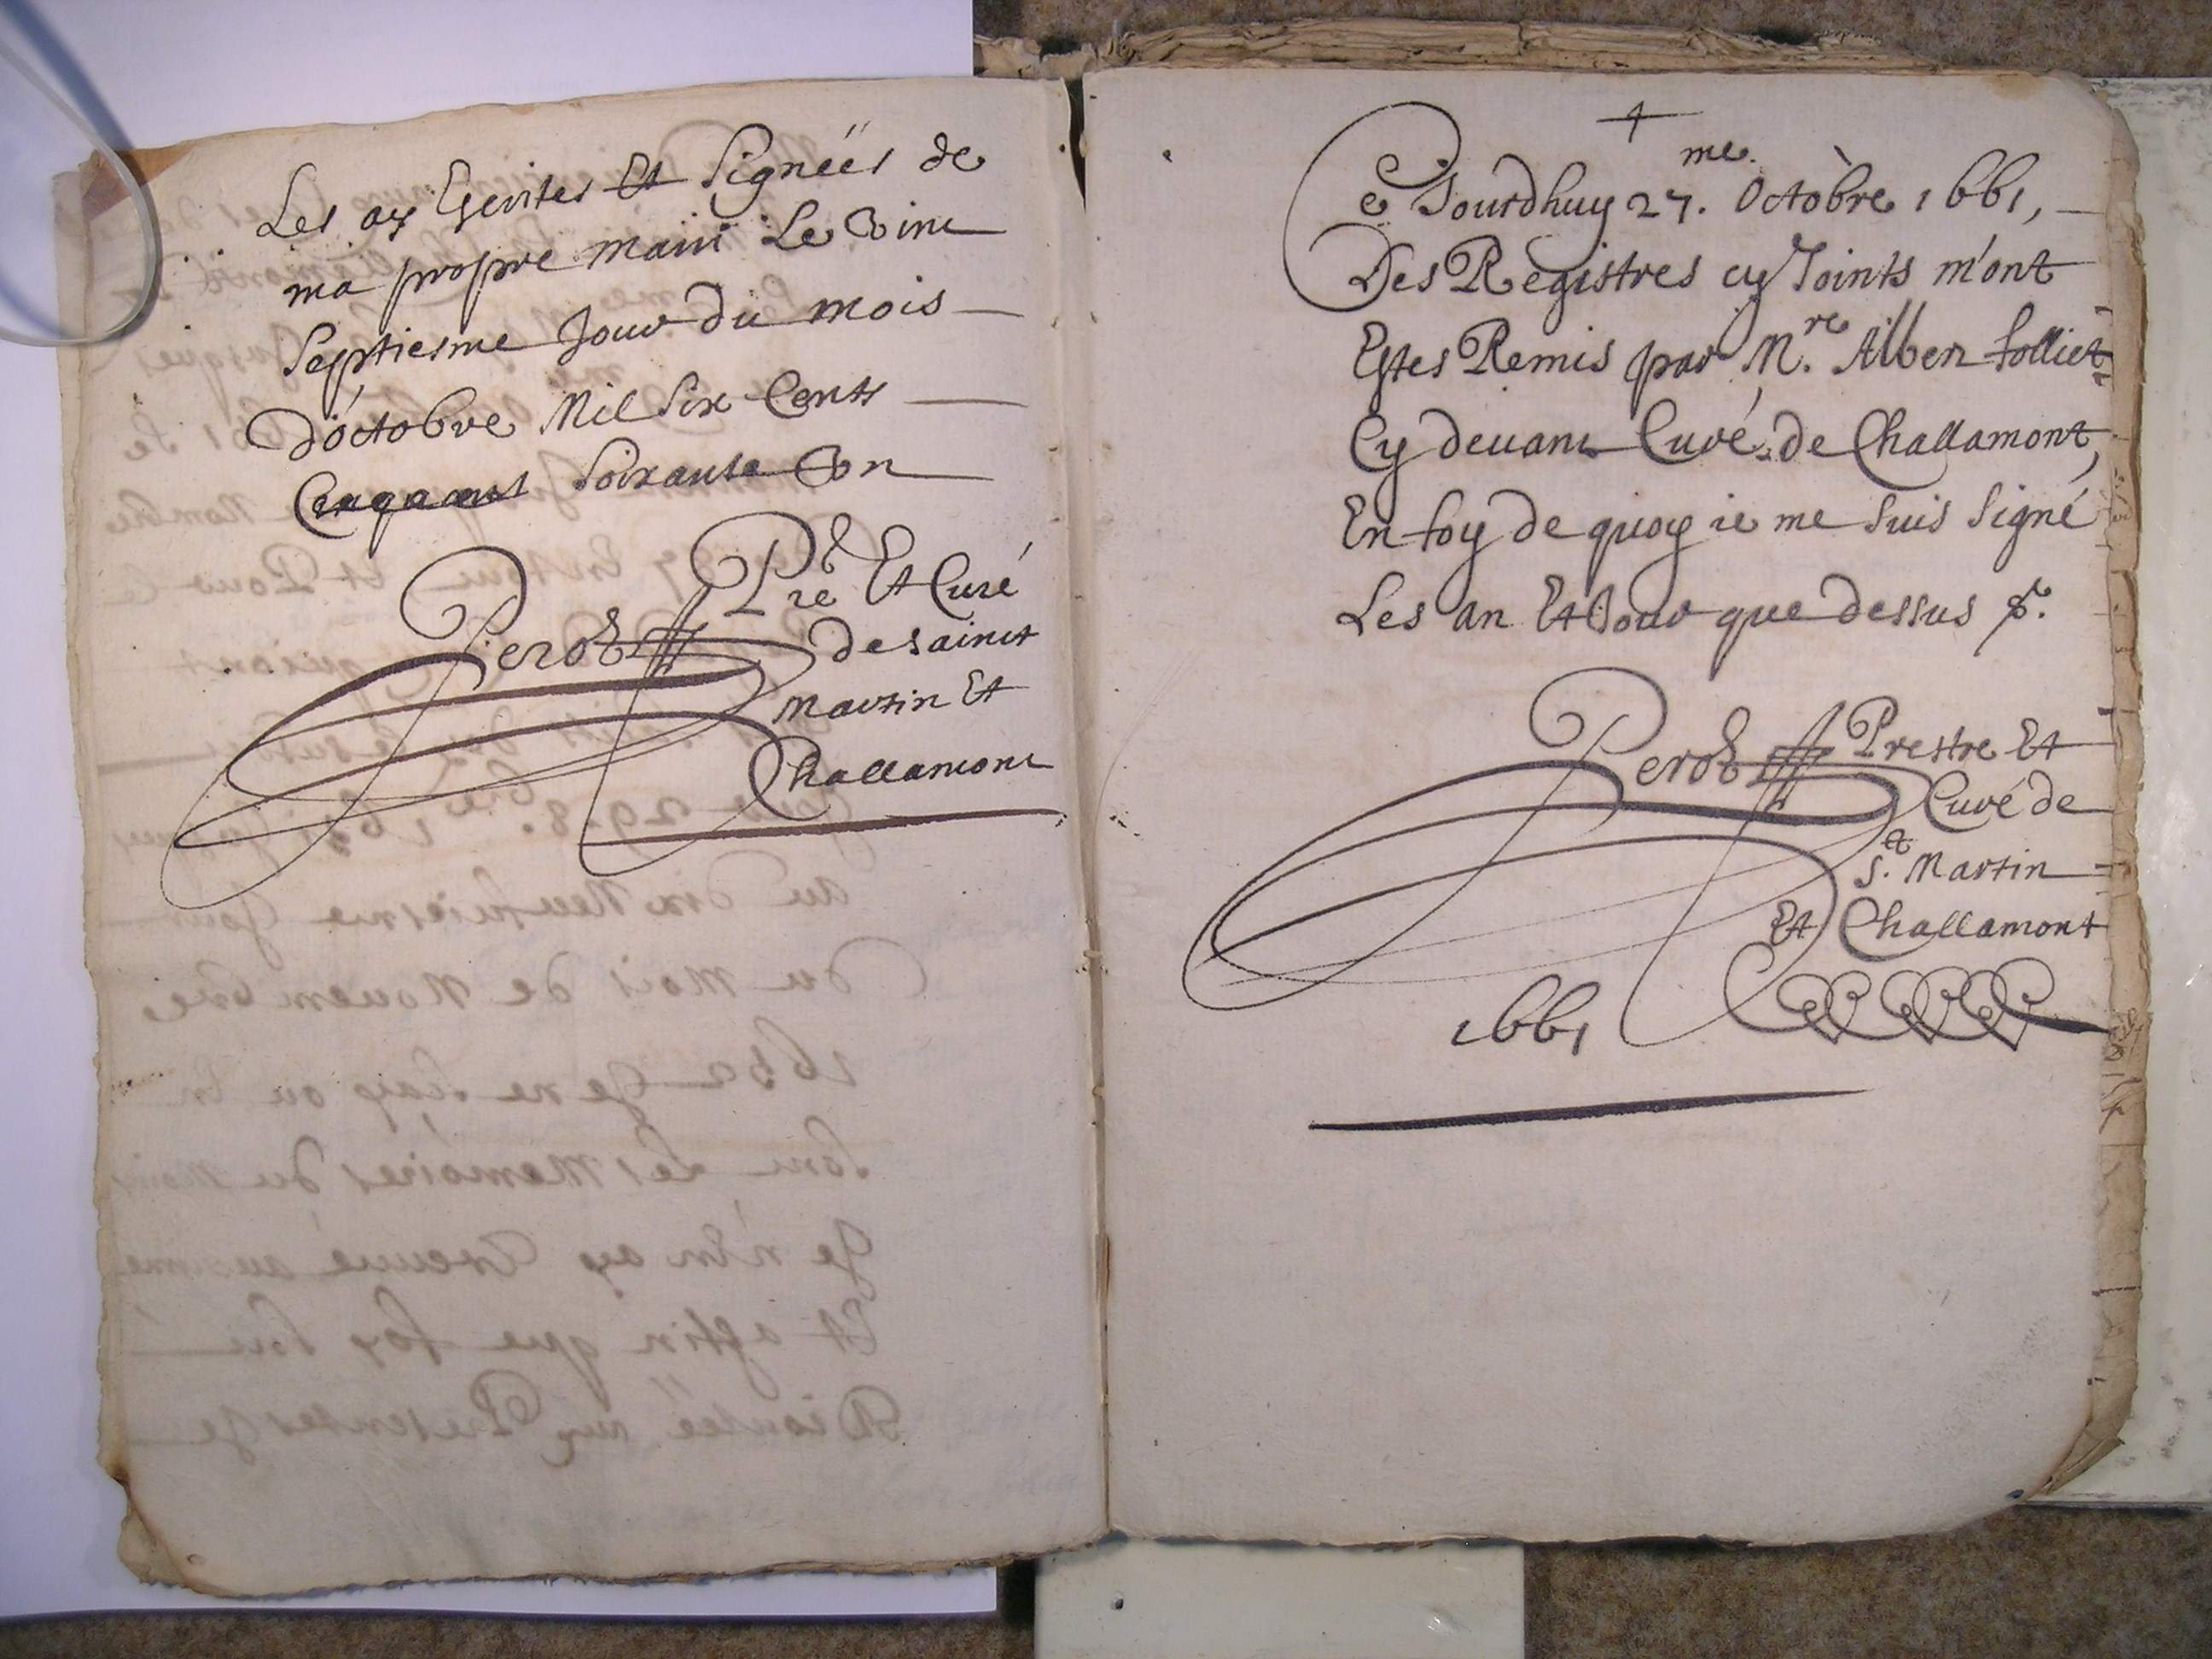 Les ay Escrites Et Signéés de
ma propre main Le Vint
Septiesme Jour du mois
d'octobre Mil Six Cents
Cinquant Soixante Vn
Perot Pre Et Curé
de sainct
Martin Et
Challamont
Ce Jourdhuy 27.me Octobre 1661,
Les Registres cy Joints m'ont
Estes Remis par Mre. Alben folliet
Cy deuant Curé de Challamont,
En foy de quoy ie me suis signé
Les an Et Jour que dessus
Perot Prestre Et
Curé de
St. Martin
Et Challamont
1661